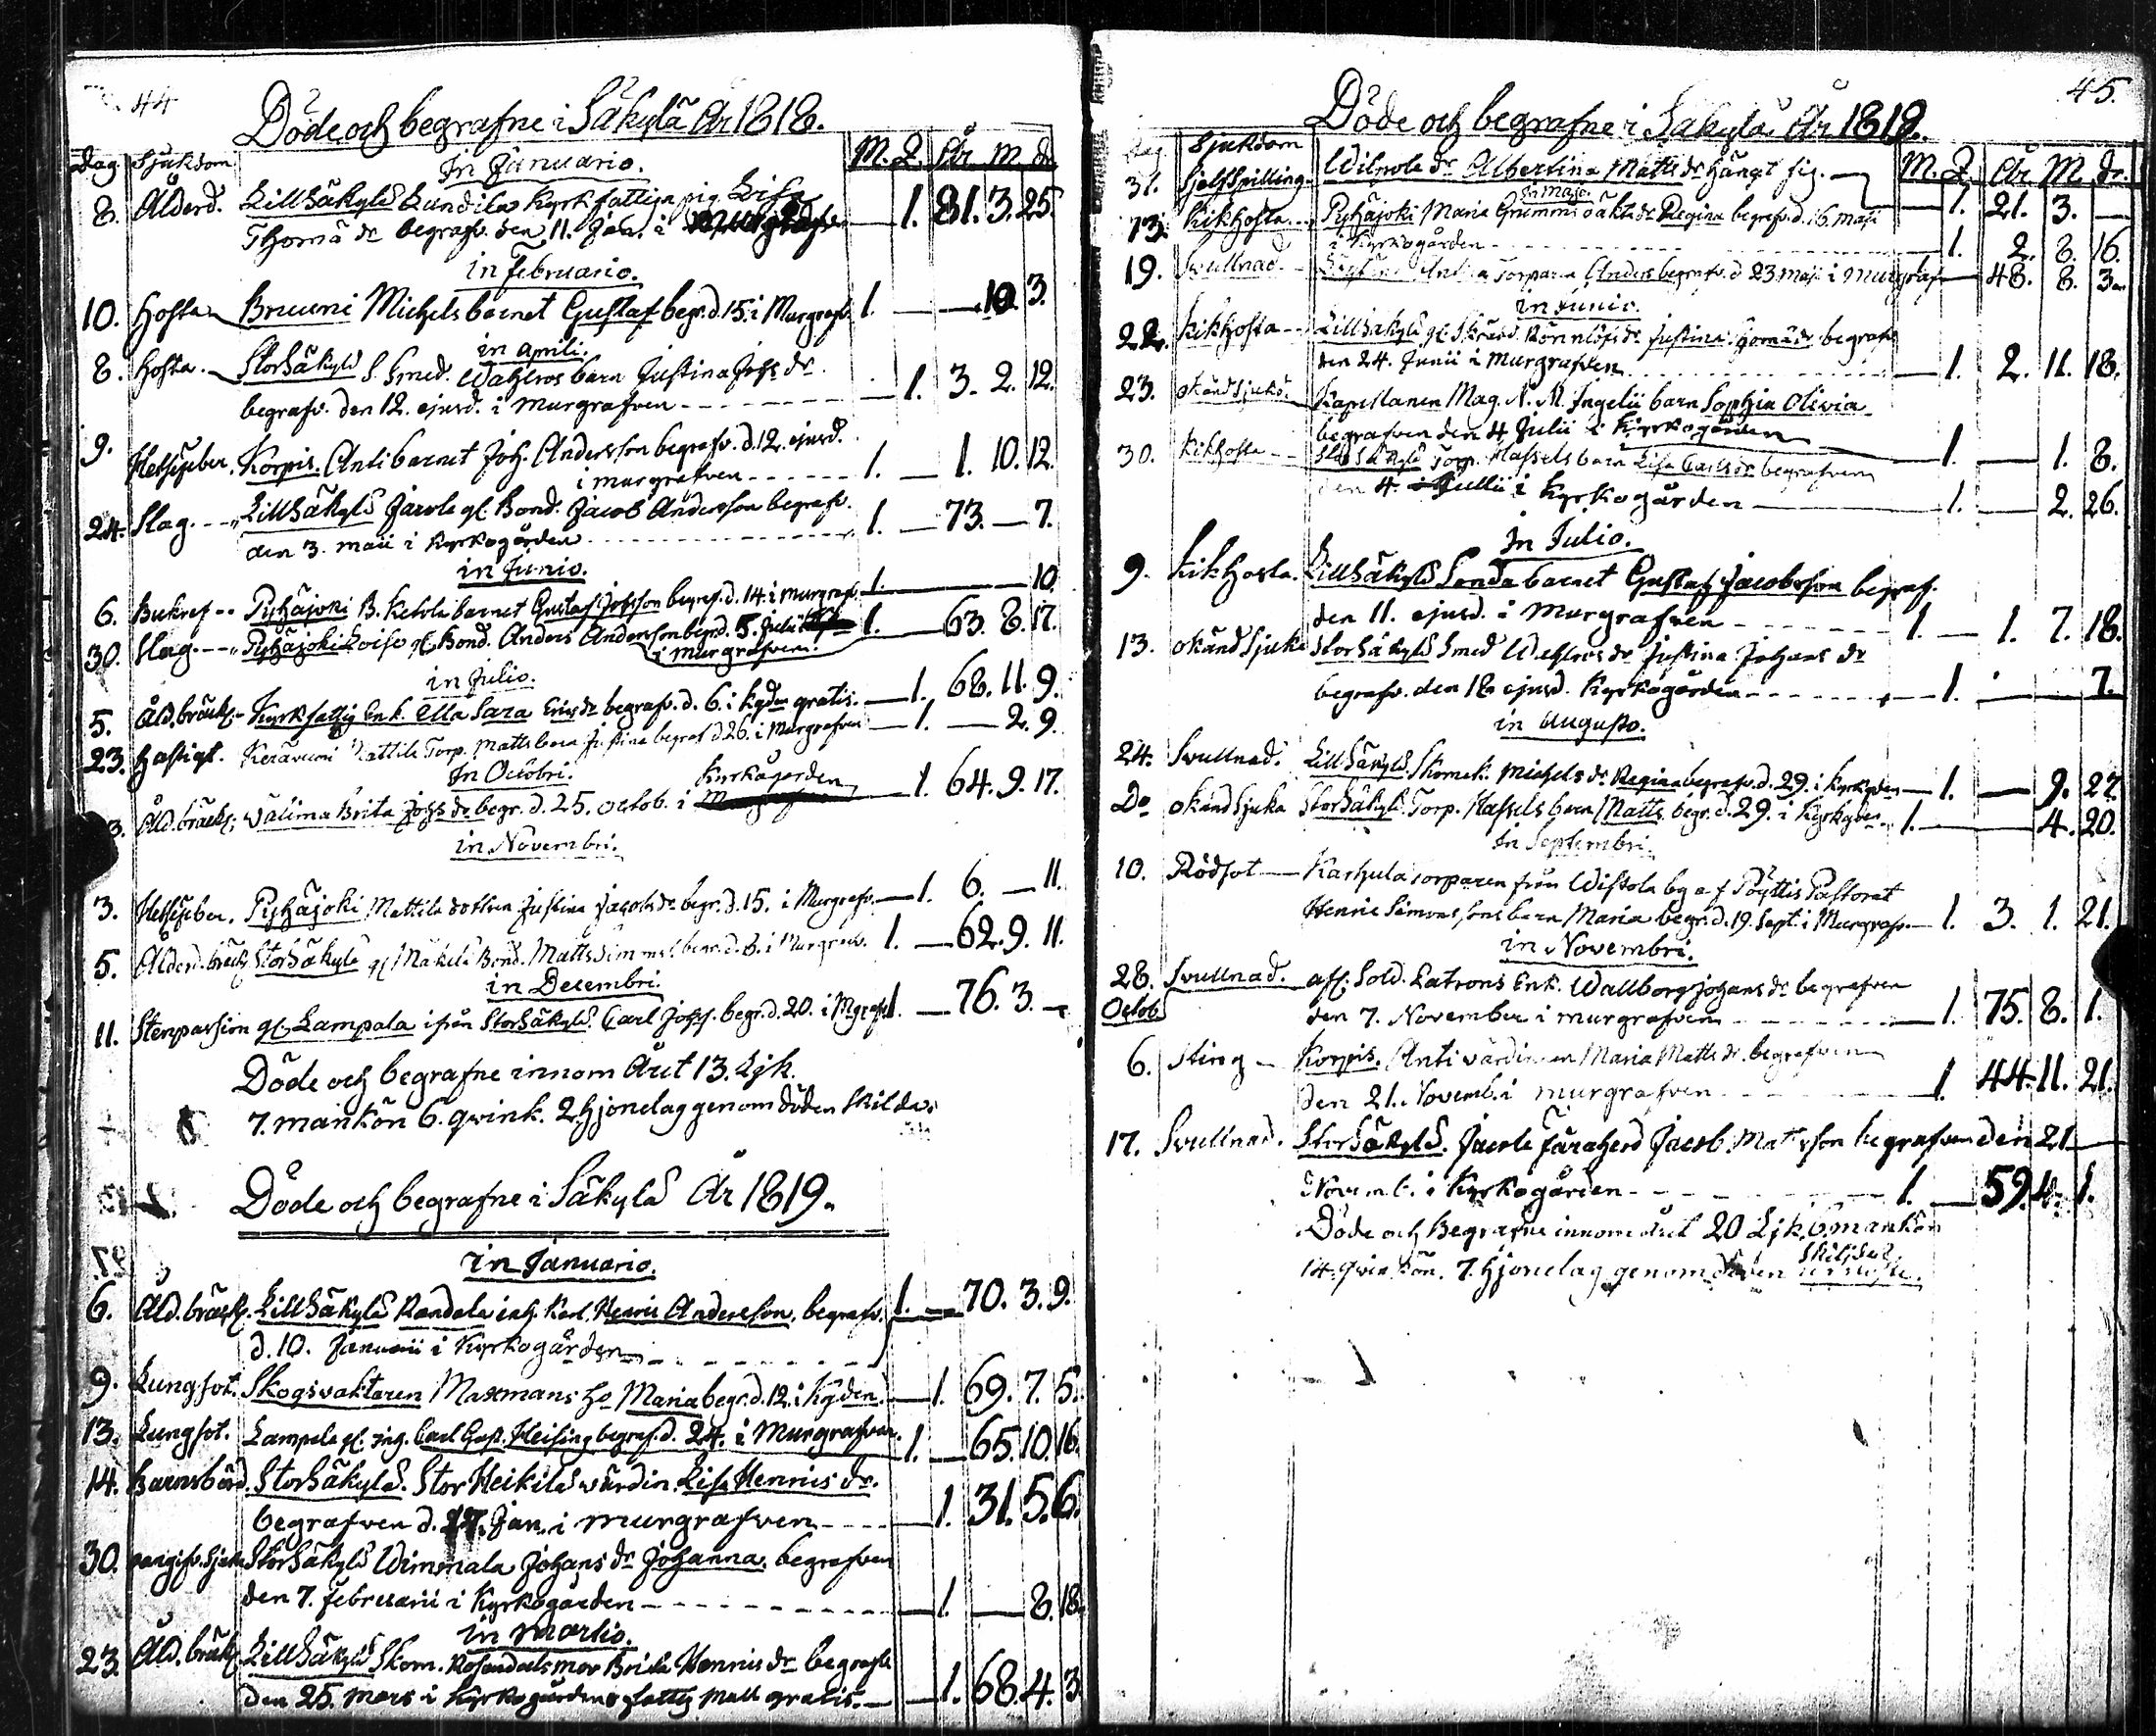 44
Döde och begrafne i Säkylä År 1818.
Dag. Sjukdom M. Q. År. M. dr.
In Januario.
8. Ålderd. Lillsäkylä Lundila Kyrkfattiga pig. Lisa
Thomä dr begrafv. den 11. Jan. i 1. 81. 3. 25.
in Februario.
10. Hosta Bruuni Michels barnet Gustaf begr. d. 15. i Murgrafv. 1. — 10. 3.
in Aprili.
8. Hosta. Storsäkylä S. Smed. Wahlros barn Justina Johs dr
begrafv. den 12. ejusd. i murgrafven 1. 3. 2. 12.
9. Hetsfeber. Korpis. Anti barnet Joh. Andersson begrafv. d. 12. ejusd.
i murgrafven 1. — 1. 10. 12.
24. Slag. Lillsäkylä Jarvle gl. Bond. Jacob Andersson begrafv.
den 3. maii i Kyrkogården 1. — 73. — 7.
in Junio.
6. Bukref Pyhäjoki B. Ketola barnet Gustaf Johsson begraf. d. 14. i murgraf. 1. — 10.
30. Slag. Pyhäjoki gl. Bond. Anders Andersson begr. d. 5. Julii 1. — 63. 8. 17.
i murgrafven.
in Julio.
5. Åld. bräckl. Kyrkfattig Enk. Ella Sara Ersdr begraf. d. 6. i kgdn gratis. 1. 68. 11. 9.
23. Hastigt. Keräwuori Mattila Torp. Matts barn Justina begraf d 26. i Murgrafven 1. — 2. 9.
In Octobri. Kyrkågården
3. Åld. bräckl. Välima Brita Johs dr begr. d. 25. Octob. i 1. 64. 9. 17.
in Novembri.
3. Hetsfeber. Pyhäjoki Mattila dottren Justina Jacobs dr begr. d. 15. i Murgrafv. 1. 6. — 11.
5. Ålderd. bräckl. Storsäkylä gl. Mäkilä Bond. Matts Simonss. begr. d. 8. i Murgrafv. 1. — 62. 9. 11.
in Decembri.
11. Stenpassion gl. Lampala ifrån Storsäkylä. Carl Johss. begr. d. 20. i Mgrafv. 1. — 76. 3. —
Döde och begrafne innom Året 13. Ljk.
7. mankön 6. qvink. 2. hjonelag genom döden skilda.
Döde och begrafne i Säkylä År 1819.
in Januario.
6. Åld. bräckl. Lillsäkylä Randala inh. Karl. Henric Andersson, begrafv. 1. — 70. 3. 9.
d. 10. Januarii i Kyrkogården
9. Lungsot. Skogsvaktaren Maxmans h:o Maria begr. d. 12. i Kgden. 1. 69. 7. 5.
13. Lungsot. Lampala gl. Carl Gust. Heising begraf. d. 24. i Murgrafven. 1. — 65. 10. 16.
14. Barnsbörd. Storsäkylä. Stor Heikilä värdin. Lisa Henrics dr.
begrafven d. Jan. i murgrafven 1. 31. 5. 6.
30. oangifv. Sjuka Storsäkylä Wimmala Johans dr Johanna. begrafven
den 7. Februarii i Kyrkogården 1. — 8. 18.
in Martio.
23. Åld. bräckl. Lillsäkylä Skom. Rosendals mor Brita Henrics dr begrafv.
den 25. Mars i Kyrkogården gratis. 1. 68. 4. 3.
45.
Döde och begrafne i Säkylä År 1819.
Dag. Sjukdom M. Q. År. M. dr.
31. Sjelfspilling. Wilvola dr Albertina Matts dr hängt sig. 1. 21. 3. —
in Majo.
13. Kikhosta Pyhäjoki Maria Grimmis oäkta dr Regina begrafv. d. 16. maji
i Kyrkogården 1. 2. 8. 16.
19. Svullnad. Torparen Anders begrafv. d 23 Maji i murgraf 48. 8. 3.
in Junio.
22. Kikhosta Lillsäkylä gl. Skrädd. Rönnlöfs dr Justina begrafv.
den 24. Junii i Murgrafven 1. 2. 11. 18.
23. okänd sjukd. Kapellanen Mag. N. M. Ingelii barn Sophia Olivia
begrafven den 4 Julii i Kyrkogården 1. — 1. 8.
30. Kikhosta Storsäkylä Torp. Hassels barn Lisa Carlsdr begrafven
den 4. Julii i Kyrkogården 1. — 2. 26.
In Julio.
9. Kikhosta. Lillsäkylä Sonda barnet Gustaf Jacobsson begraf.
den 11. ejusd. i Murgrafven 1. — 1. 7. 18.
13. okänd Sjuka Storsäkylä Smed Wahlros dr Justina Johans dr
begrafv. den 18 ejusd. Kyrkogården 1. — 7.
in Augusto.
24. Svullnad. Lillsäkylä. Skomak. Michels dr Regina begrafv. d. 29. i Kyrkgden 1. — 9. 27.
Do okänd Sjuka Storsäkylä. Torp. Hassels barn Matts. begr. d. 29. i Kyrkgden. 1. — 4. 20.
In Septembri.
10. Rödsot Karhula torparen från Wistola by af Pöyttis Pastorat
Henric Simonssons barn Maria begr. d. 19. Sept. i Murgrafv. 1. 3. 1. 21.
in Novembri.
28. Svullnad. afl. Sold. Latrons Enk. Wallborg Johans dr begrafven
Octob. den 7. November i murgrafven 1. 75. 8. 1.
6. Sting Korpis. Anti värdinnan Maria Matts dr. begrafven
den 21. Novemb. i murgrafven 1. 44. 11. 21.
17. Svullnad. Storsäkylä. Jaerle Faraherd Jacob. Matsson begrafven den 21
Novemb. i Kyrkogården 1. — 59. 4. 1.
Döde och Begrafne innom året 20 Ljk. 6. mankön
14. qvinkön. 7. hjonelag genom döden skiljde.